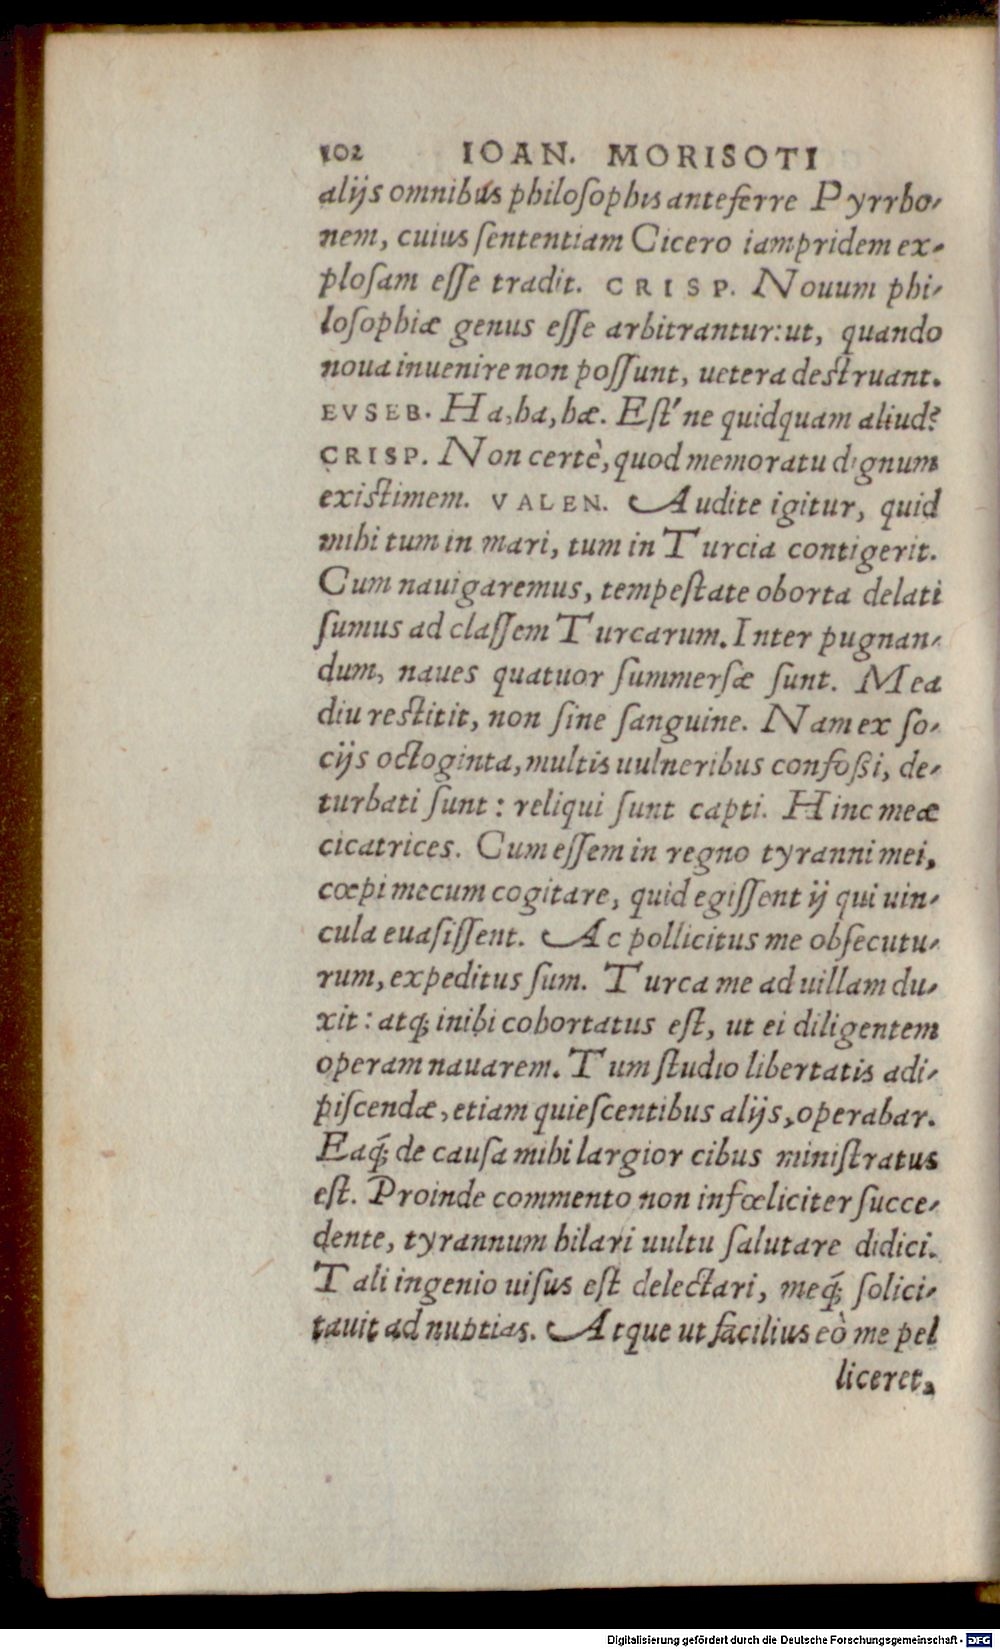 102 IOAN. MORISOTI
alijs omnibus philoſophis anteferre Pyrrho-
nem, cuius ſententiam Cicero iampridem ex-
ploſam eſſe tradit. CRISP. Nouum phi-
loſophiæ genus eſſe arbitrantur: ut, quando
noua inuenire non poſſunt, uetera deſtruant.
EVSEB. Ha, ha, hæ. Eſt'ne quidquam aliud?
CRISP. Non certè, quod memoratu dignum
exiſtimem. VALEN. Audite igitur, quid
mihi tum in mari, tum in Turcia contigerit.
Cum nauigaremus, tempeſtate oborta delati
ſumus ad claſſem Turcarum. Inter pugnan-
dum, naues quatuor ſummerſæ ſunt. Mea
diu reſtitit, non ſine ſanguine. Nam ex ſo-
cijs octoginta, multis uulneribus confoßi, de-
turbati ſunt: reliqui ſunt capti. Hinc meæ
cicatrices. Cum eſſem in regno tyranni mei,
cœpi mecum cogitare, quid egiſſent ij qui uin-
cula euaſiſſent. Ac pollicitus me obſecutu-
rum, expeditus ſum. Turca me ad uillam du-
xit: atq; inibi cohortatus eſt, ut ei diligentem
operam nauarem. Tum ſtudio libertatis adi-
piſcendæ, etiam quieſcentibus alijs, operabar.
Eaq́; de cauſa mihi largior cibus miniſtratus
eſt. Proinde commento non infœliciter ſucce-
dente, tyrannum hilari uultu ſalutare didici.
Tali ingenio uiſus eſt delectari, meq́; ſolici-
tauit ad nuptias. Atque ut facilius eò me pel
liceret,
Digitalisierung gefördert durch die Deutsche Forschungsgemeinschaft - DFG